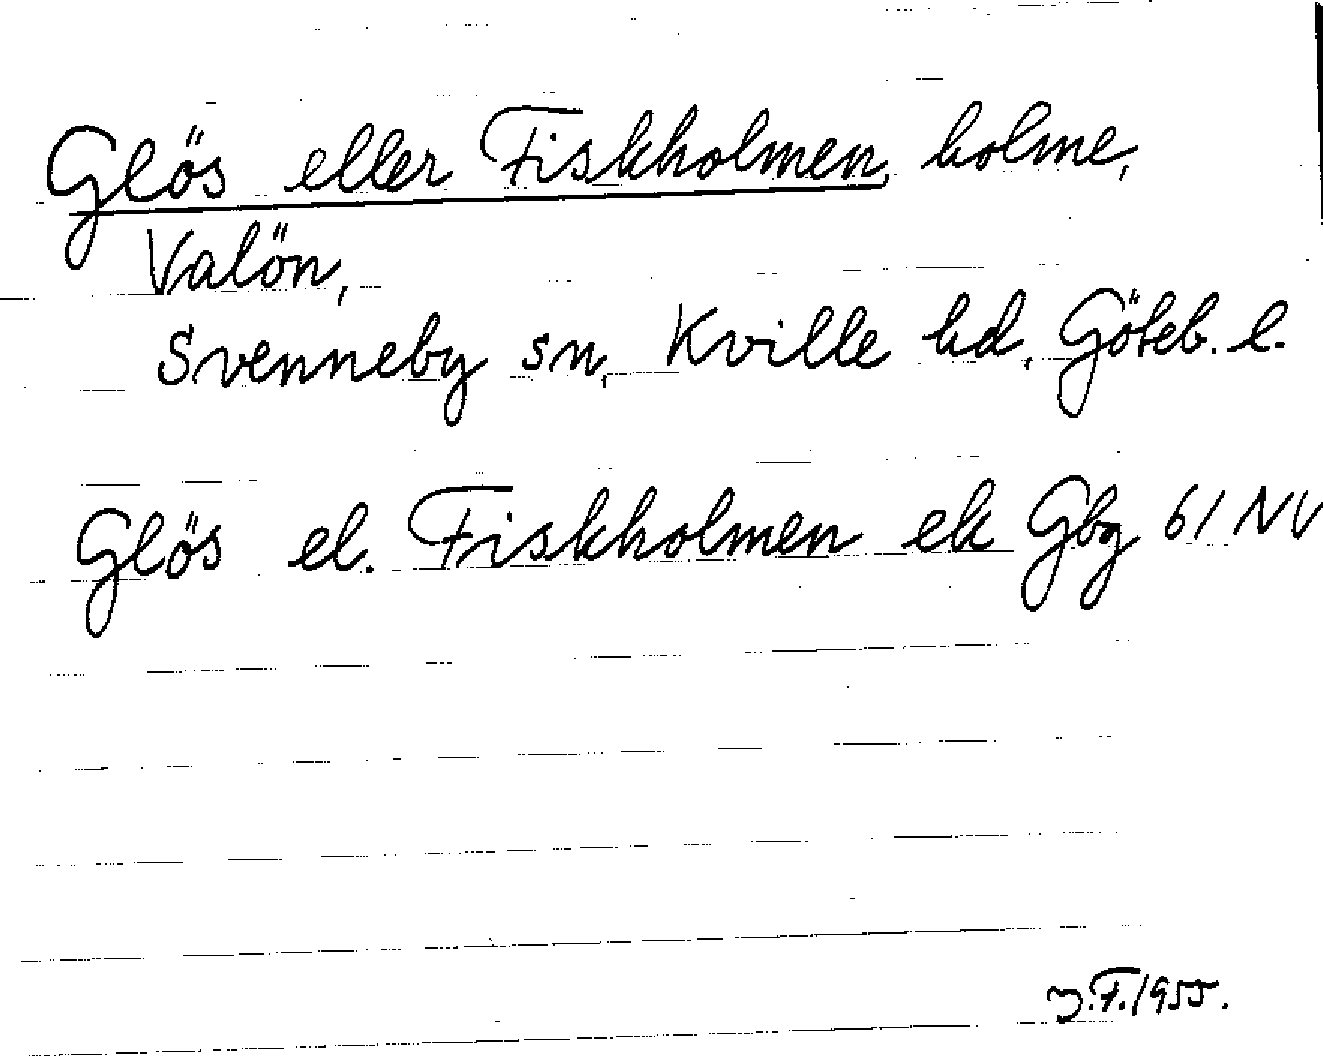 Glös eller Fiskholmen, holme,
Valön,
Svenneby sn, Kville hd, Göteb. l.
Glös el. Fiskholmen ek Gbg 61 NV
J.F. 1955.